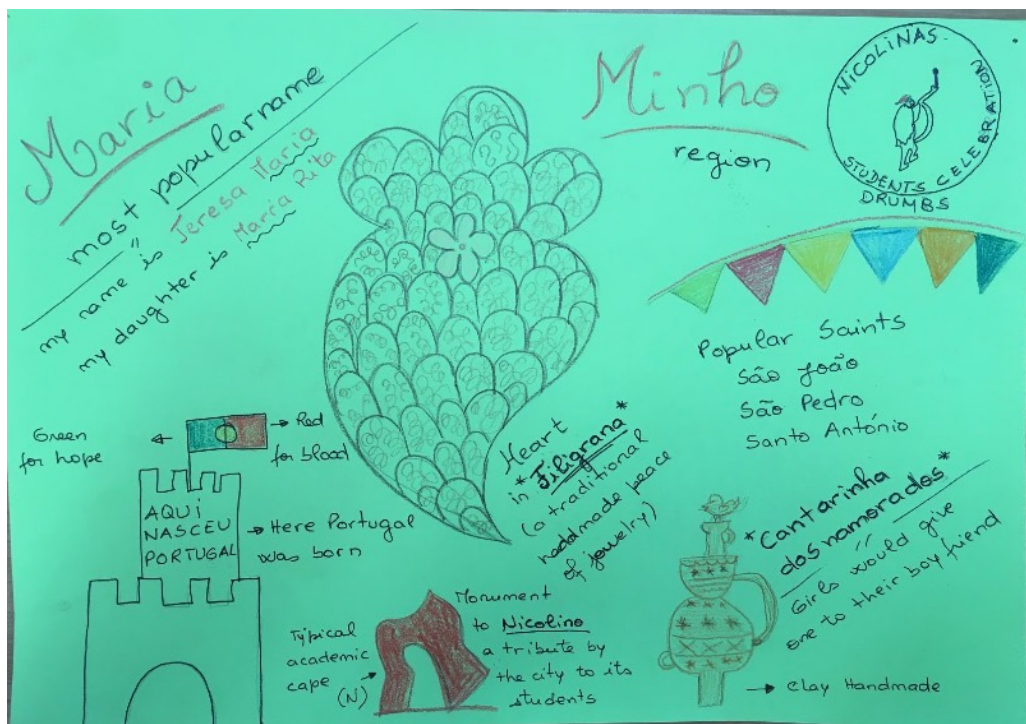 Maria
most popular name
my name is Teresa Maria
my daughter is Maria Rita
Minho
region
NICOLINAS
STUDENTS CELEBRATION
DRUMBS
Popular Saints
São João
São Pedro
Santo António
Green
for hope
Red
for blood
AQUI
NASCEU
PORTUGAL
Here Portugal
was born
Heart
in *Filigrana*
(a traditional
haddmade peace
of jewelry)
*Cantarinha
dos namorados*
Girls would give
one to their boy friend
Clay Handmade
Typical
academic
cape
(N)
Monument
to Nicolino
a tribute by
the city to its
students